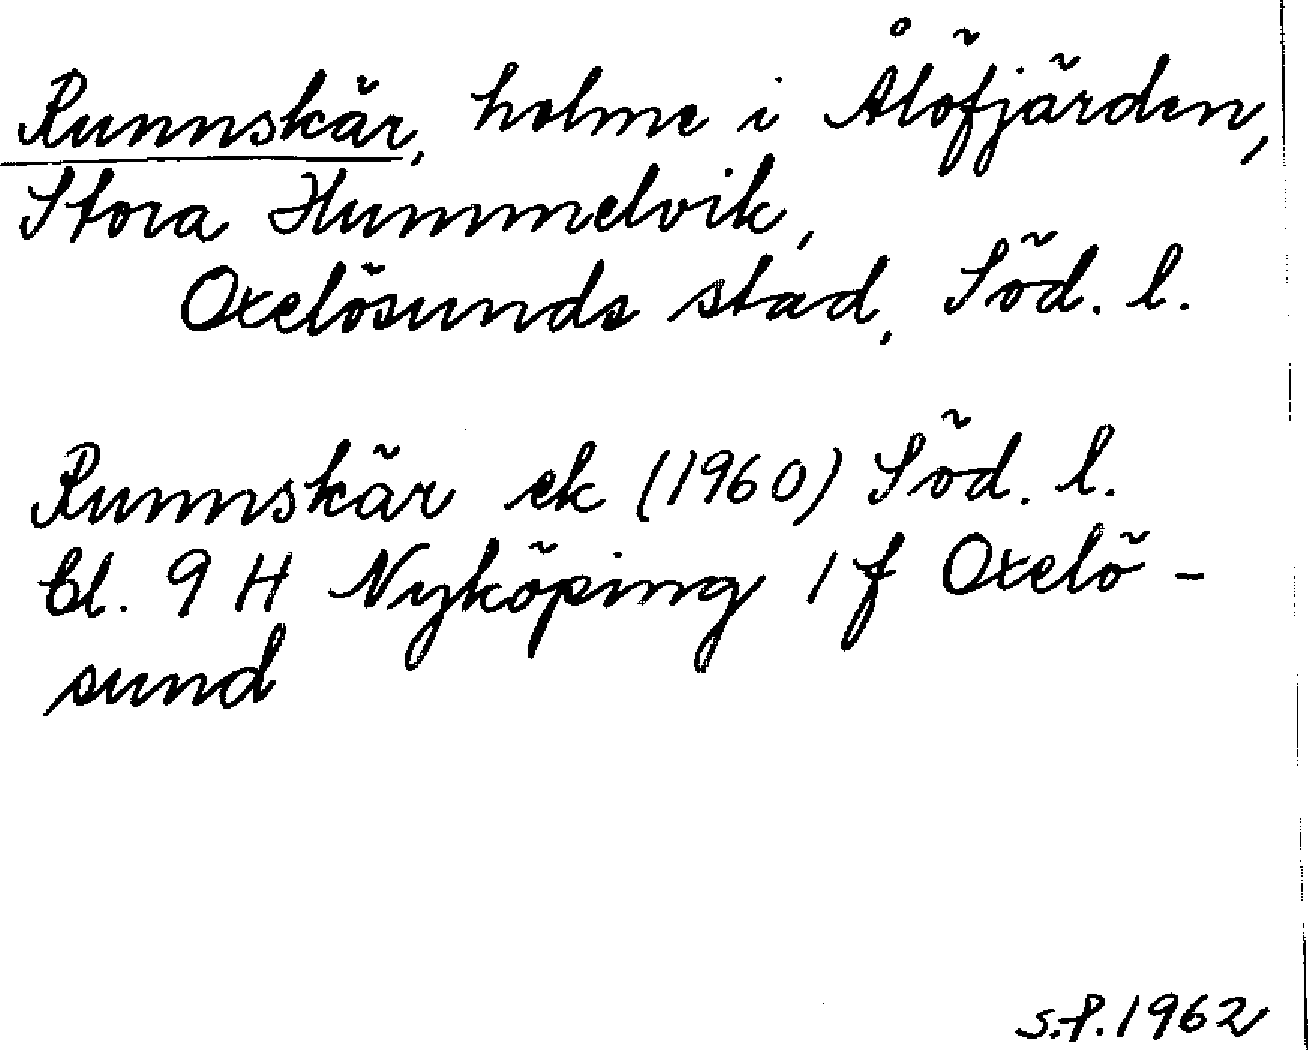 Runnskär, holme i Ålöfjärden,
Stora Hummelvik,
Oxelösunds stad, Söd. l.
Runnskär ek (1960) Söd. l.
bl. 9 H Nyköping 1 f Oxelö-
sund
s.f. 1962